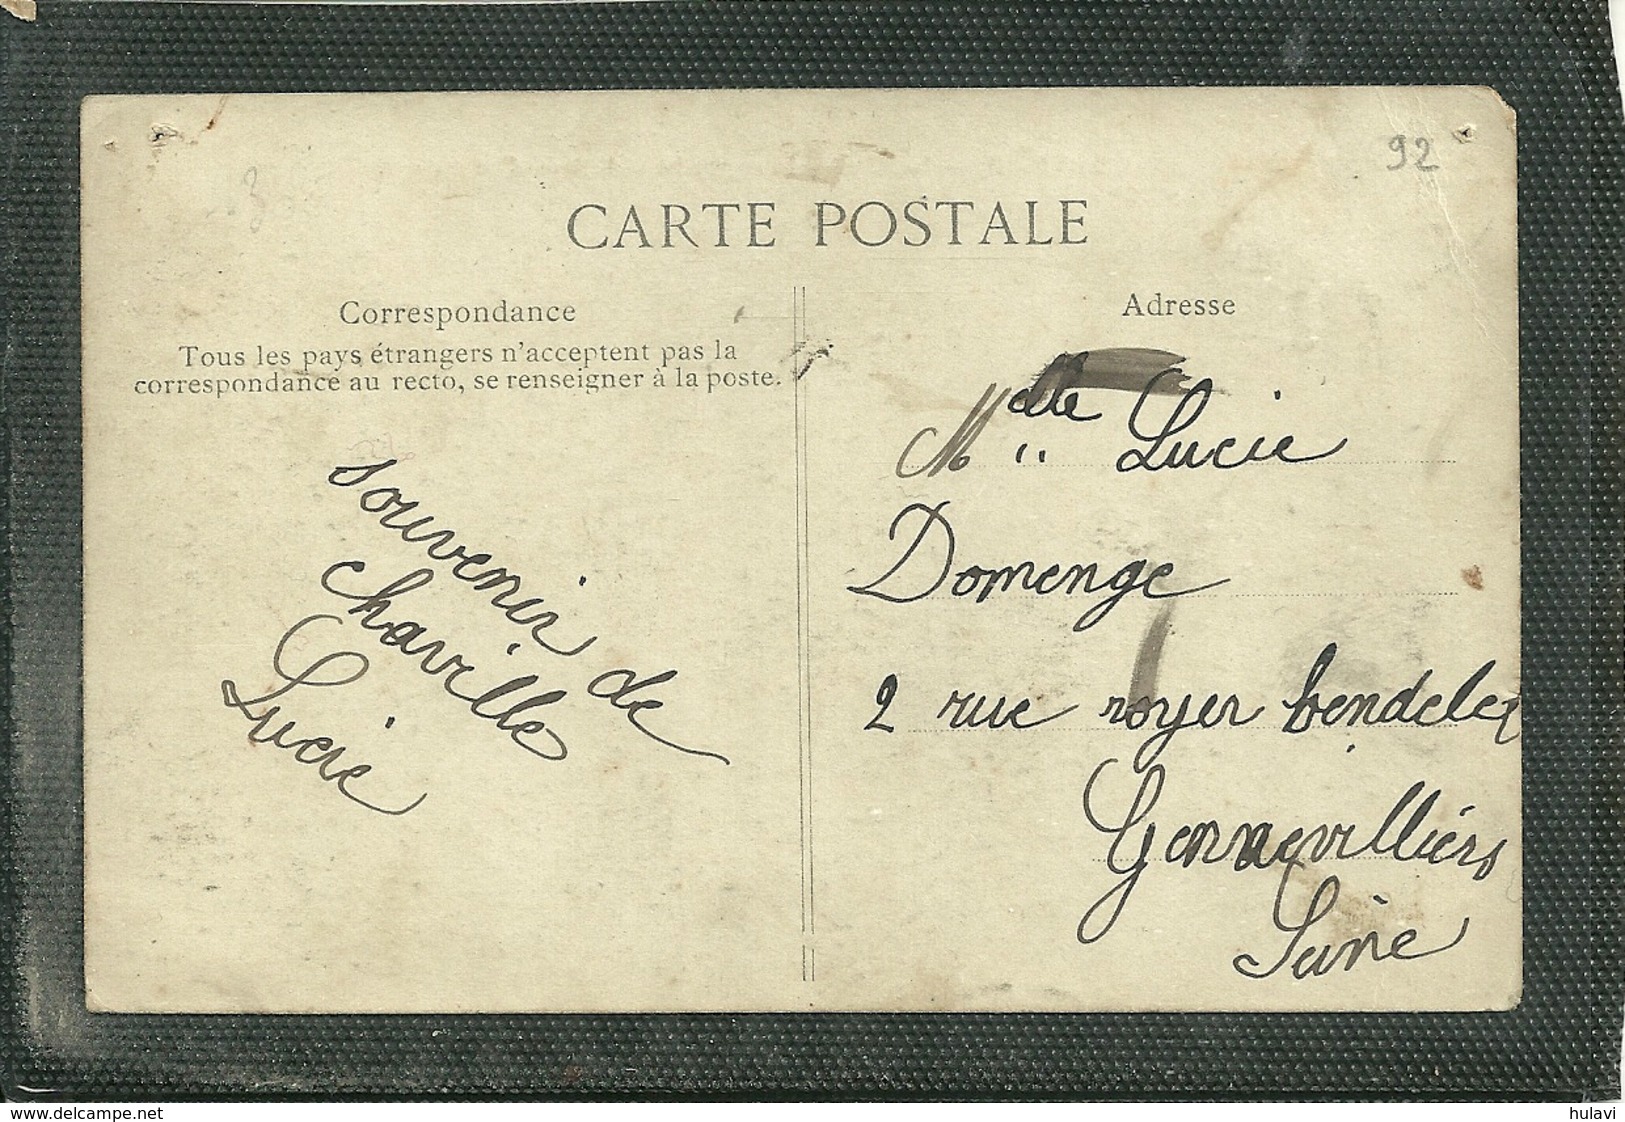 92
CARTE POSTALE
Correspondance
Tous les pays étrangers n'acceptent pas la
correspondance au recto, se renseigner à la poste.
souvenir de
chaville
Lucie
Adresse
Mlle Lucie
Domenge
2 rue royer bendelez
Gennevilliers
Seine
www.delcampe.net
hulavi